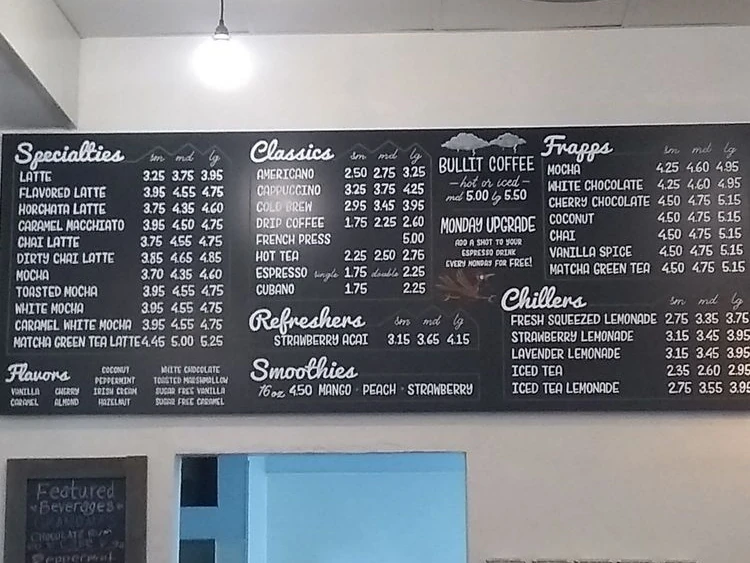 Specialties sm md lg
LATTE 3.25 3.75 3.95
FLAVORED LATTE 3.95 4.55 4.75
HORCHATA LATTE 3.75 4.35 4.60
CARAMEL MACCHIATO 3.95 4.50 4.75
CHAI LATTE 3.75 4.55 4.75
DIRTY CHAI LATTE 3.85 4.65 4.85
MOCHA 3.70 4.35 4.60
TOASTED MOCHA 3.95 4.55 4.75
WHITE MOCHA 3.95 4.55 4.75
CARAMEL WHITE MOCHA 3.95 4.55 4.75
MATCHA GREEN TEA LATTE 4.45 5.00 5.25
Flavors
VANILLA CHERRY
CARAMEL ALMOND
COCONUT
PEPPERMINT
IRISH CREAM
HAZELNUT
WHITE CHOCOLATE
TOASTED MARSHMALLOW
SUGAR FREE VANILLA
SUGAR FREE CARAMEL
Classics sm md lg
AMERICANO 2.50 2.75 3.25
CAPPUCCINO 3.25 3.75 4.25
COLD BREW 2.95 3.45 3.95
DRIP COFFEE 1.75 2.25 2.60
FRENCH PRESS 5.00
HOT TEA 2.25 2.50 2.75
ESPRESSO single 1.75 double 2.25
CUBANO 1.75 2.25
Refreshers sm md lg
STRAWBERRY ACAI 3.15 3.65 4.15
Smoothies
16oz 4.50 MANGO · PEACH · STRAWBERRY
BULLIT COFFEE
- hot or iced -
md 5.00 lg 5.50
MONDAY UPGRADE
ADD A SHOT TO YOUR
ESPRESSO DRINK
EVERY MONDAY FOR FREE!
Frapps sm md lg
MOCHA 4.25 4.60 4.95
WHITE CHOCOLATE 4.25 4.60 4.95
CHERRY CHOCOLATE 4.50 4.75 5.15
COCONUT 4.50 4.75 5.15
CHAI 4.50 4.75 5.15
VANILLA SPICE 4.50 4.75 5.15
MATCHA GREEN TEA 4.50 4.75 5.15
Chillers sm md lg
FRESH SQUEEZED LEMONADE 2.75 3.35 3.75
STRAWBERRY LEMONADE 3.15 3.45 3.95
LAVENDER LEMONADE 3.15 3.45 3.95
ICED TEA 2.35 2.60 2.95
ICED TEA LEMONADE 2.75 3.55 3.95
Featured
Beverages
CHOCOLATE RUM
Peppermint